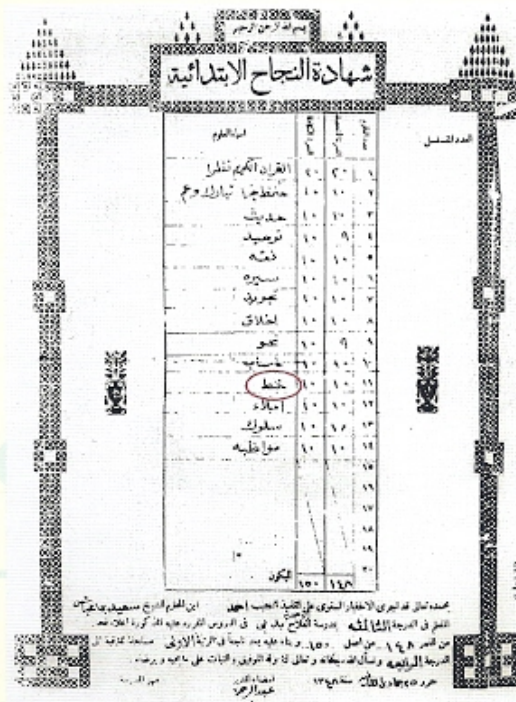 بسم الله الرحمن الرحيم
شهادة النجاح الابتدائية
العدد المتسلسل
اسماء العلوم
القران الكريم نظرا ٢٠ ٢٠ ١
حفظ جزء تبارك وعم ١٠ ١٠ ٢
حديث ١٠ ١٠ ٣
توحيد ١٠ ٩ ٤
فقه ١٠ ١٠ ٥
سيره ١٠ ١٠ ٦
تجويد ١٠ ١٠ ٧
اخلاق ١٠ ١٠ ٨
نحو ١٠ ٩ ٩
حساب ١٠ ١٠ ١٠
خط ١٠ ١٠ ١١
املاء ١٠ ١٠ ١٢
سلوك ١٠ ١٠ ١٣
مواظبه ١٠ ١٠ ١٤
١٥
١٦
١٧
١٨
١٩
٢٠
اليكون ١٥٠ ١٤٨
بحمده تعالى قد اجرى الاختبار السنوي على التلميذ النجيب احمد ابن المحترم الشيخ سعيد
في الدرجة الثالثه بمدرسة الفلاح بدبي في الدروس المقرره عليه المذكورة اعلاه فحصل
من النمر ١٤٨ من اصل ١٥٠ وبناء عليه يعد ناجحا في الرتبة الاولى
الدرجة الرابعه ونسأل الله سبحانه وتعالى له التوفيق والثبات على ما يحبه ويرضاه
حرر ٢٥ جمادى سنة ١٣٤٨
المدير
عبدالرحمن
مهر المدرسة